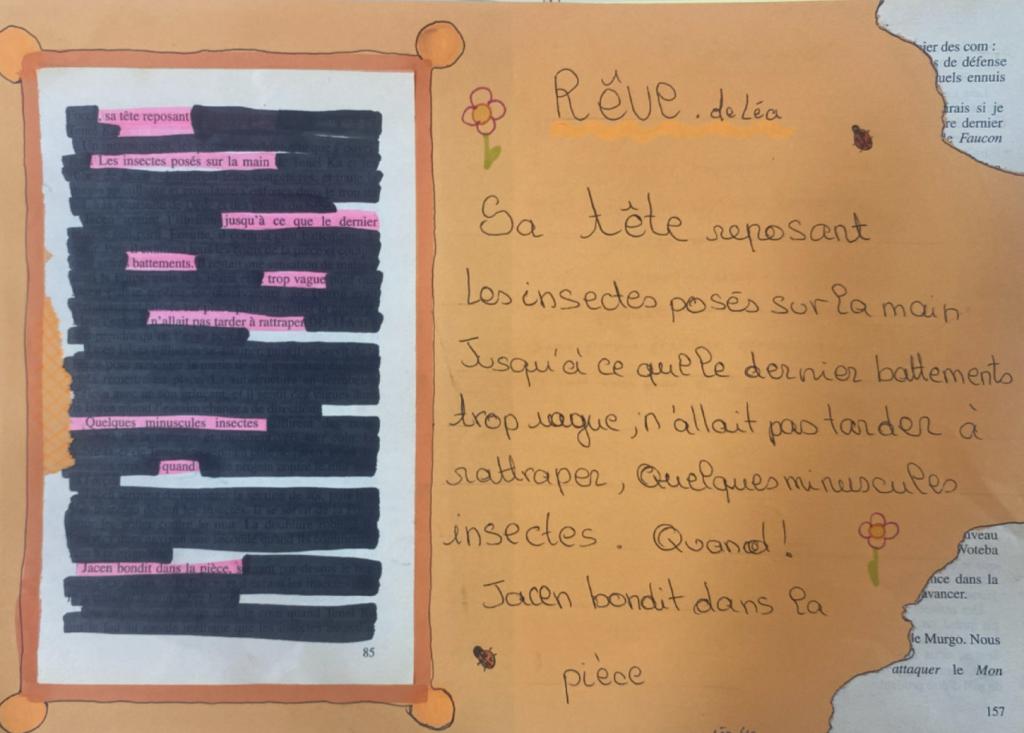 , sa tête reposant
Les insectes posés sur la main
jusqu'à ce que le dernier
battements.
trop vague
n'allait pas tarder à rattraper
Quelques minuscules insectes
quand
Jacen bondit dans la pièce,
85
Rêve. de Léa
Sa tête reposant
Les insectes posés sur la main
Jusqu'ci ce quelle dernier battements
trop vague, n'allait pas tarder à
rattraper, Quelques minuscules
insectes. Quand!
Jacen bondit dans la
pièce
ier des com :
s de défense
uels ennuis
irais si je
re dernier
le Faucon
uveau
Voteba
nce dans la
avancer.
le Murgo. Nous
attaquer le Mon
157